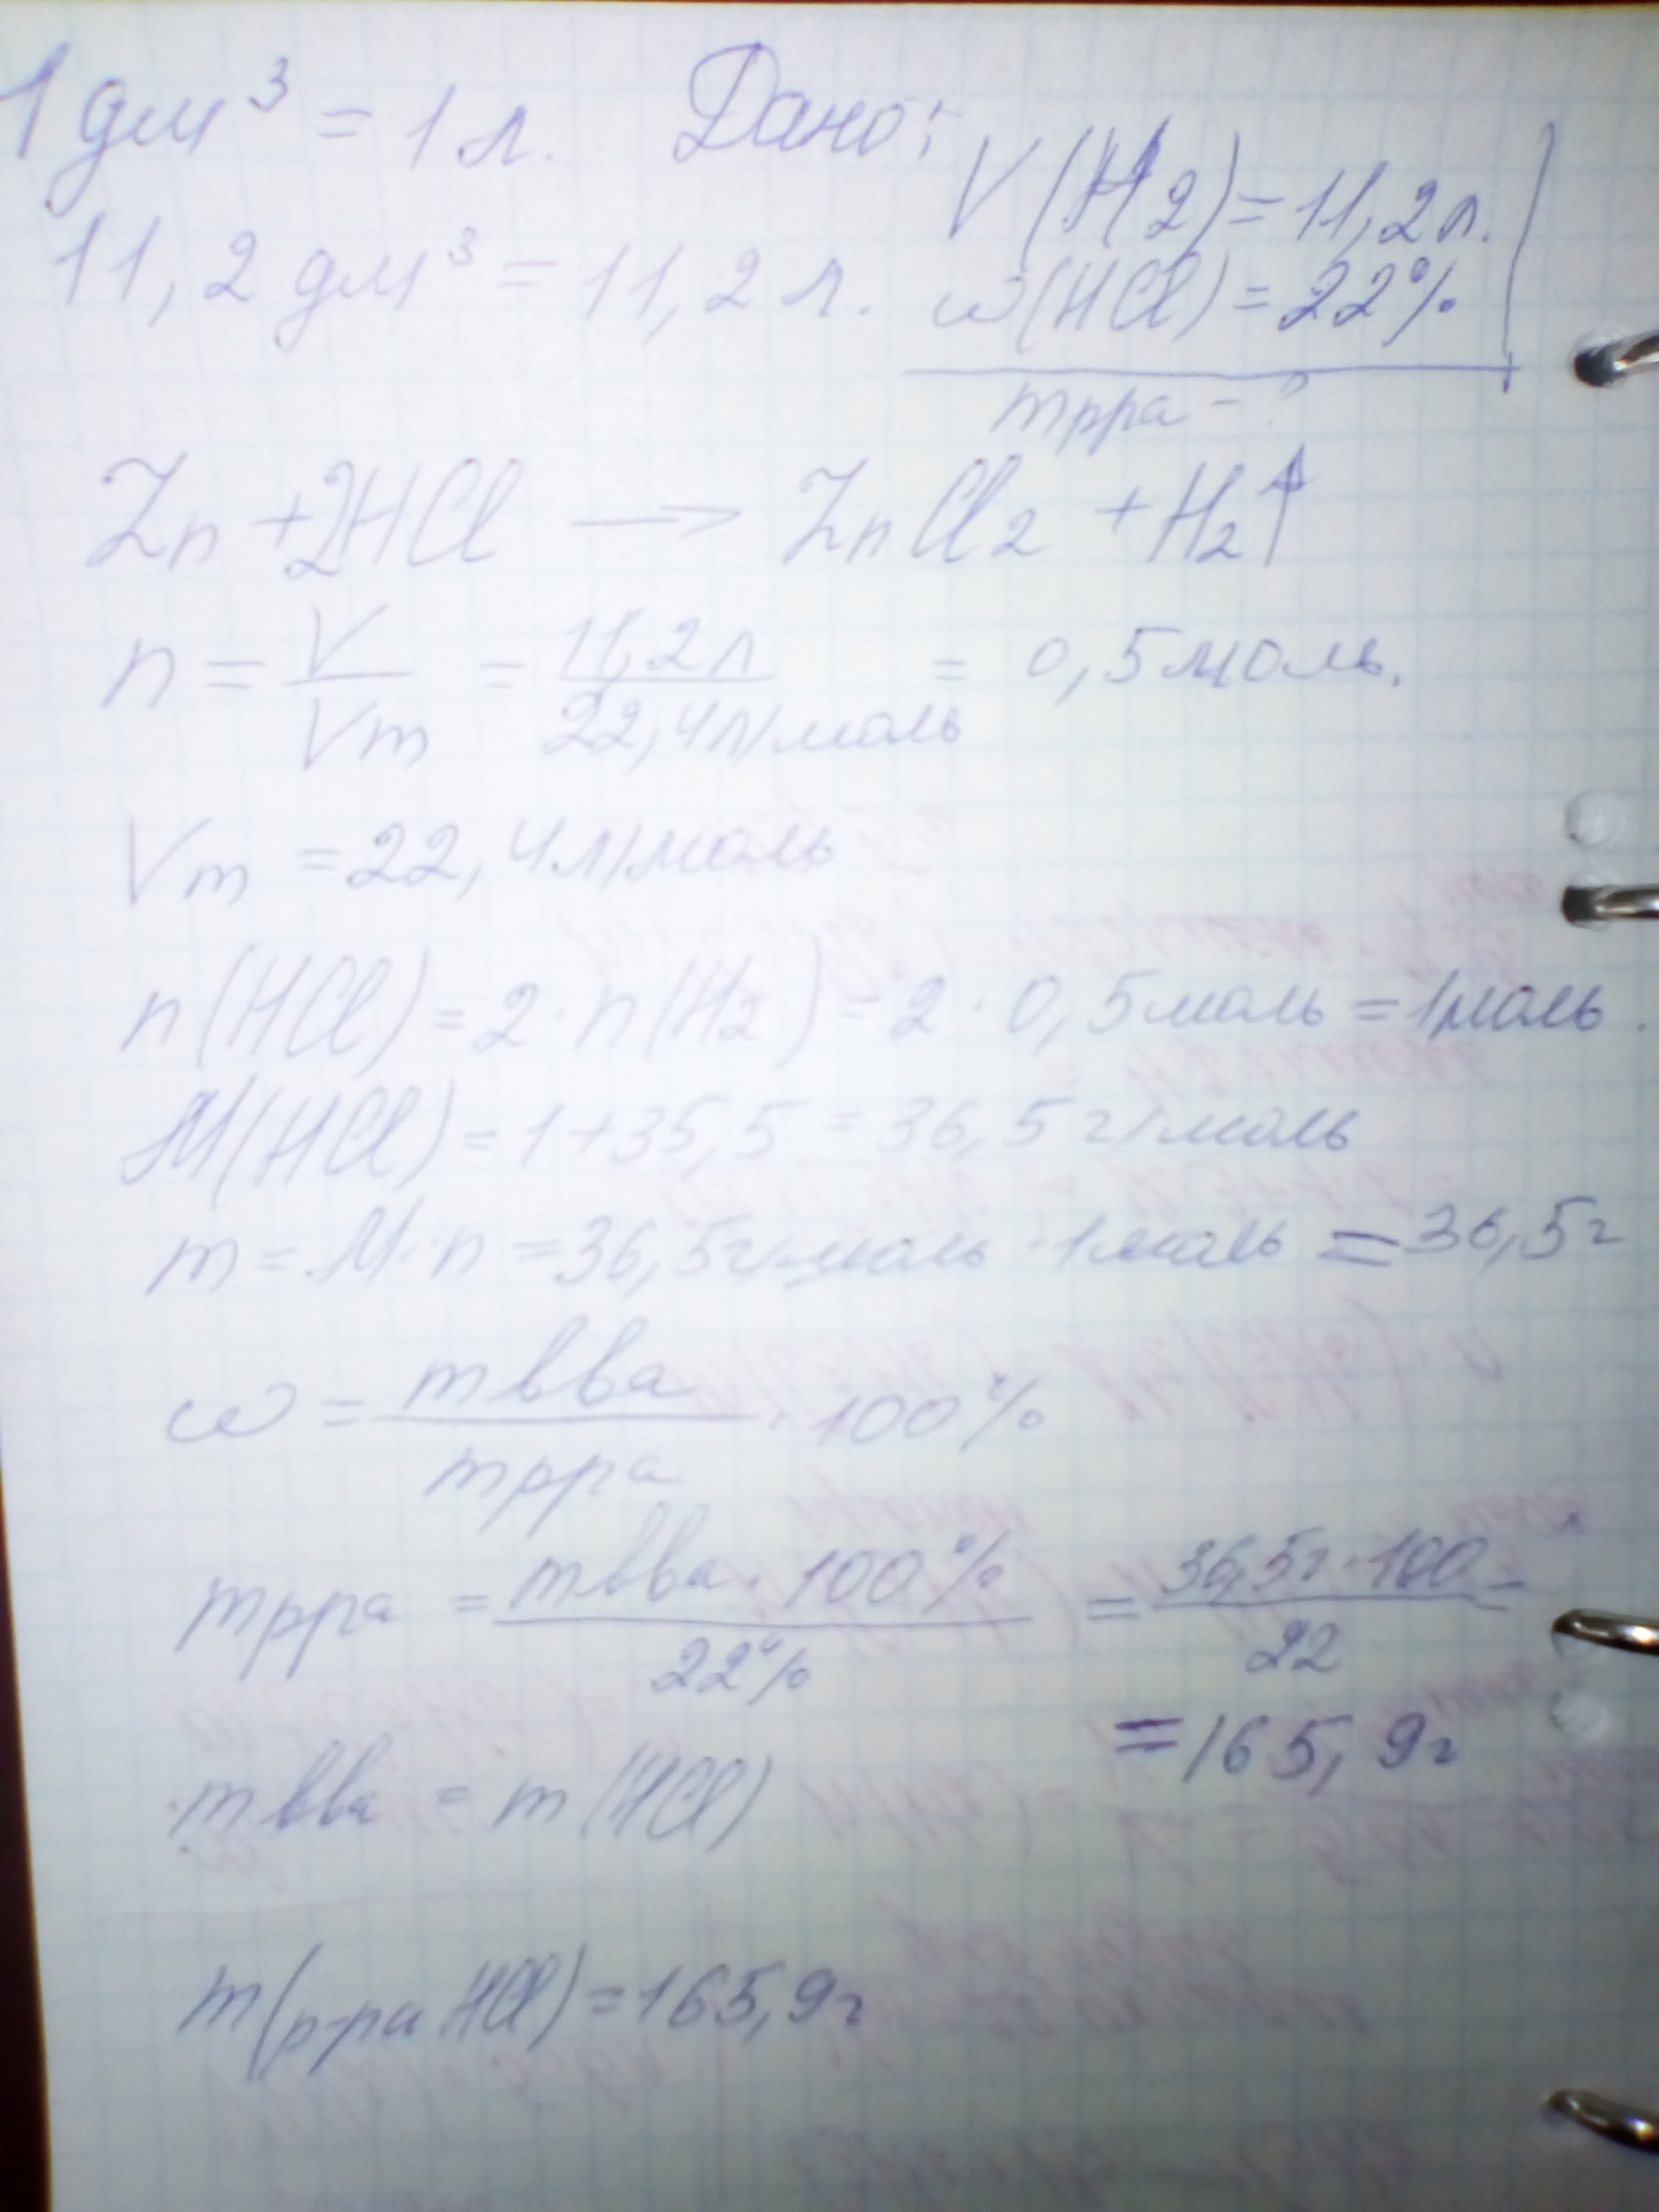 1 дм³ = 1 л. Дано:
V(H2) = 11,2 л.
11,2 дм³ = 11,2 л.
ω(HCl) = 22%
mрра - ?
Zn + 2HCl → ZnCl2 + H2↑
n = V/Vm = 11,2л/22,4л/моль = 0,5моль.
Vm = 22,4л/моль
n(HCl) = 2 · n(H2) = 2 · 0,5моль = 1моль.
M(HCl) = 1+35,5 = 36,5г/моль
m = M · n = 36,5г/моль · 1моль = 36,5г
ω = mвва/mрра · 100%
mрра = mвва · 100%/22% = 36,5г · 100/22 =
= 165,9г
mвва = m(HCl)
m(р-ра HCl) = 165,9г